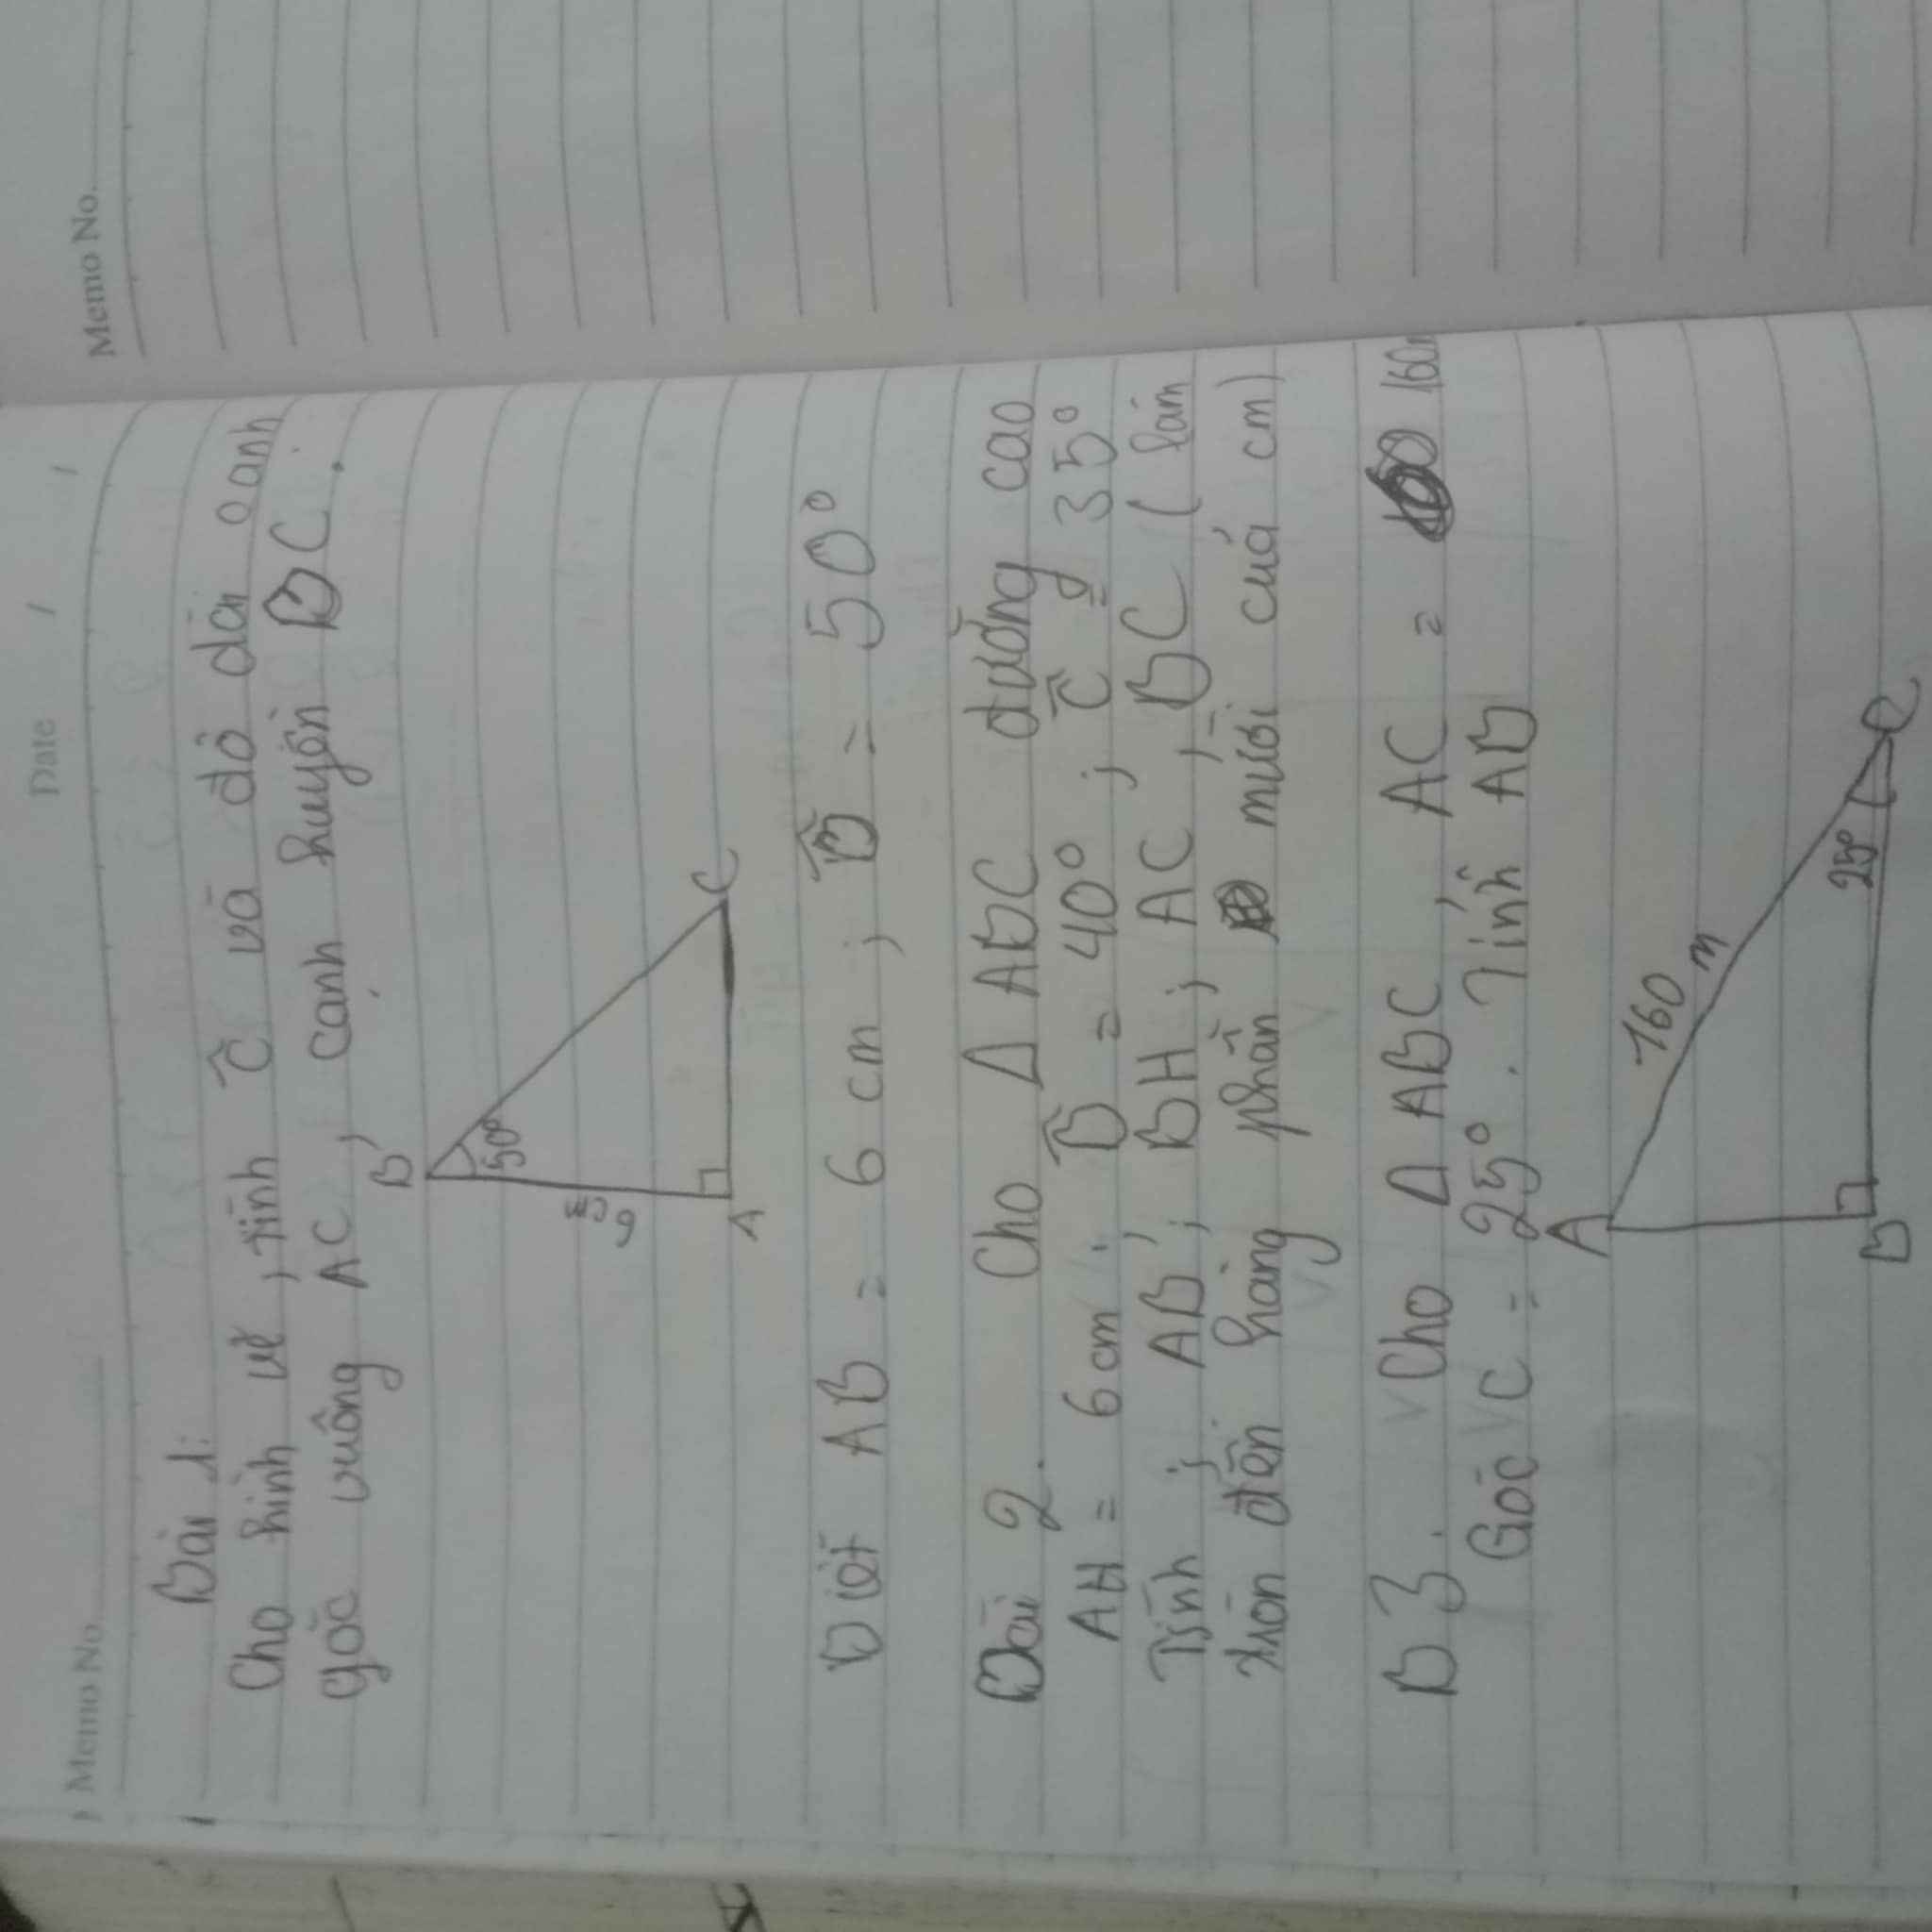 Memo No.
Date / /
Bài 1:
Cho hình vẽ, tính Ĉ và độ dài cạnh
góc vuông AC, cạnh huyền BC.
B
50°
6 cm
A
C
Biết AB = 6 cm; B̂ = 50°
Bài 2. Cho Δ ABC đường cao
AH = 6 cm. B̂ = 40°; Ĉ = 35°
Tính; AB; BH; AC; BC (làm
tròn đến hàng phần mười của cm)
B3. Cho Δ ABC, AC = 160m
Góc C = 25°. Tính AB
A
160 m
25°
B
C
Memo No.